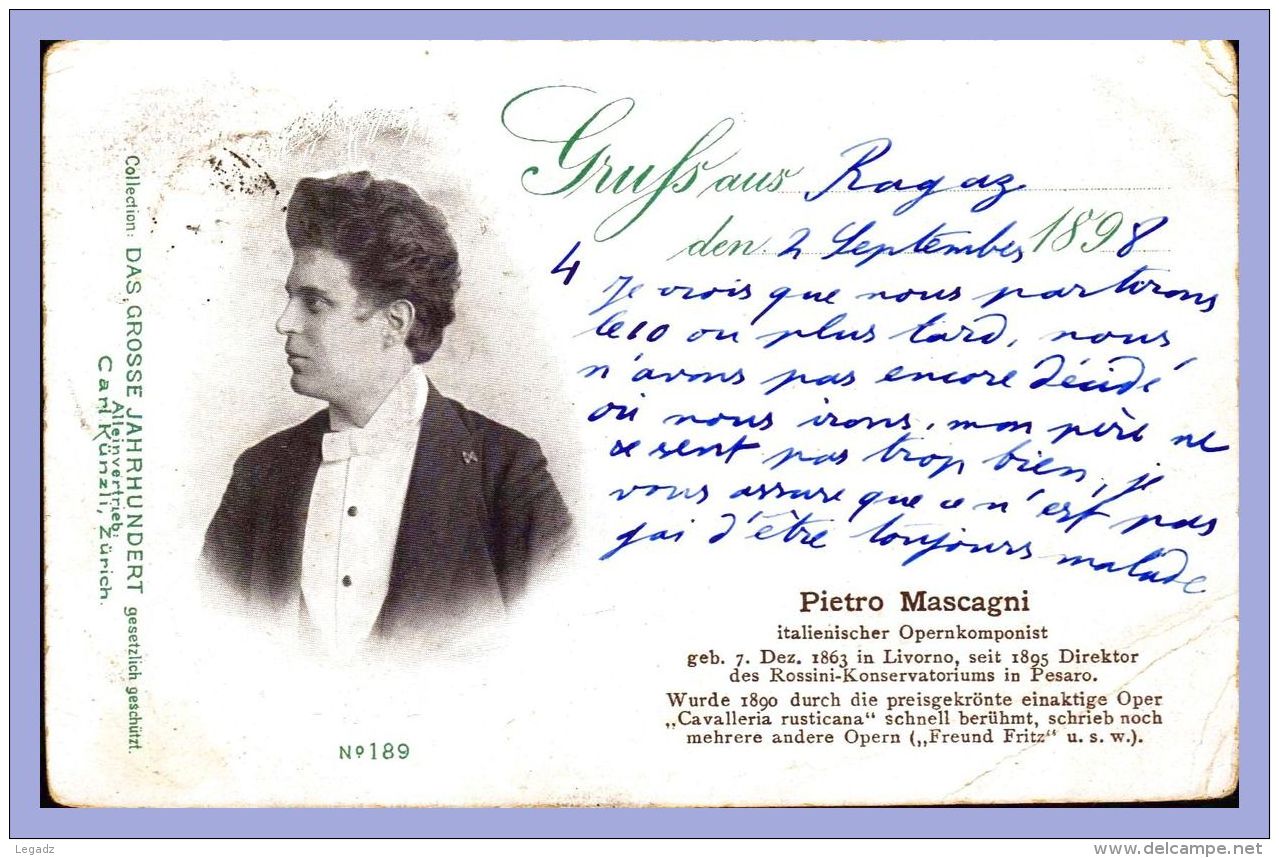 Gruss aus Ragaz
den 2 September 1898
4
Je crois que nous partirons
le 10 ou plus tard, nous
n'avons pas encore décidé
où nous irons, mon père ne
se sent pas trop bien, je
vous assure que ce n'est pas
gai d'être toujours malade
Collection: DAS GROSSE JAHRHUNDERT gesetzlich geschützt.
Alleinvertrieb:
Carl Künzli, Zürich.
Pietro Mascagni
italienischer Opernkomponist
geb. 7. Dez. 1863 in Livorno, seit 1895 Direktor
des Rossini-Konservatoriums in Pesaro.
Wurde 1890 durch die preisgekrönte einaktige Oper
„Cavalleria rusticana“ schnell berühmt, schrieb noch
mehrere andere Opern („Freund Fritz“ u. s. w.).
No 189
Legadz
delcampe.net